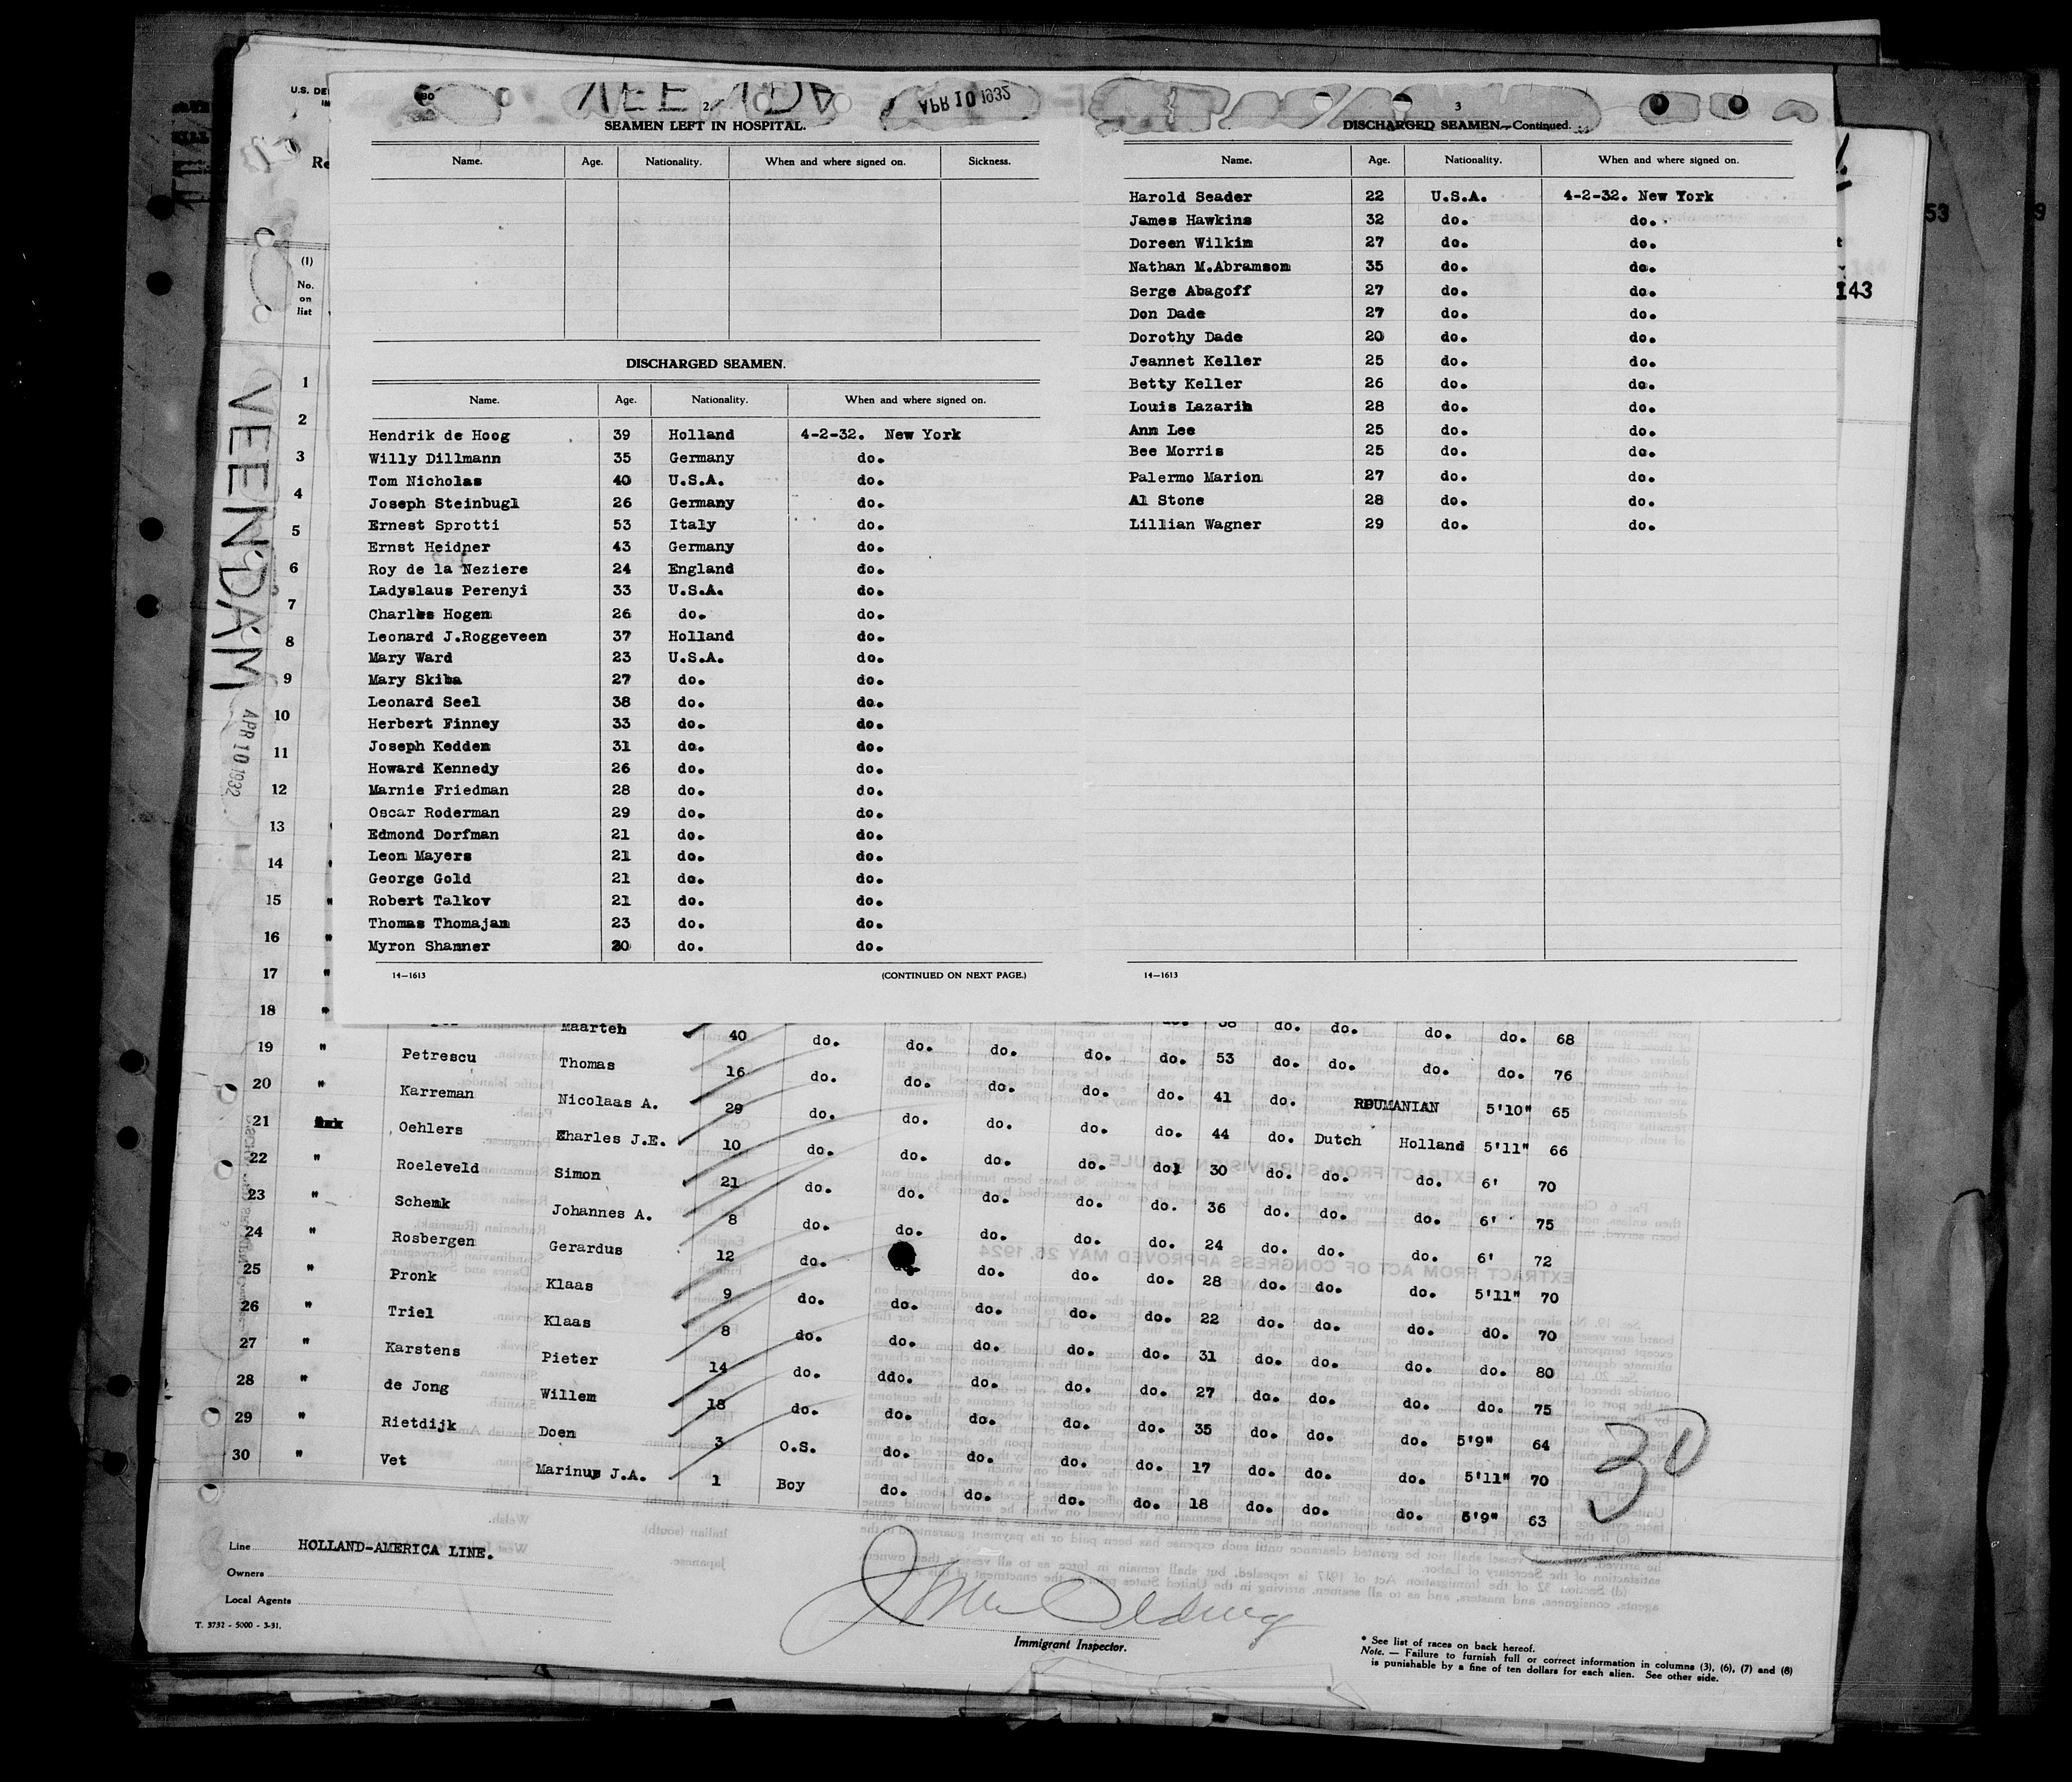 2
APR 10 1932
SEAMEN LEFT IN HOSPITAL.
Name. Age. Nationality. When and where signed on. Sickness.
DISCHARGED SEAMEN.
Name. Age. Nationality. When and where signed on.
Hendrik de Hoog 39 Holland 4-2-32. New York
Willy Dillmann 35 Germany do.
Tom Nicholas 40 U.S.A. do.
Joseph Steinbugl 26 Germany do.
Ernest Sprotti 53 Italy do.
Ernst Heidner 43 Germany do.
Roy de la Neziere 24 England do.
Ladyslaus Perenyi 33 U.S.A. do.
Charles Hogen 26 do. do.
Leonard J.Roggeveen 37 Holland do.
Mary Ward 23 U.S.A. do.
Mary Skiba 27 do. do.
Leonard Seel 38 do. do.
Herbert Finney 33 do. do.
Joseph Kedden 31 do. do.
Howard Kennedy 26 do. do.
Marnie Friedman 28 do. do.
Oscar Roderman 29 do. do.
Edmond Dorfman 21 do. do.
Leon Mayers 21 do. do.
George Gold 21 do. do.
Robert Talkov 21 do. do.
Thomas Thomajan 23 do. do.
Myron Shanner 20 do. do.
14—1613 (CONTINUED ON NEXT PAGE.)
3
DISCHARGED SEAMEN—Continued.
Name. Age. Nationality. When and where signed on.
Harold Seader 22 U.S.A. 4-2-32. New York
James Hawkins 32 do. do.
Doreen Wilkin 27 do. do.
Nathan M.Abramson 35 do. do.
Serge Abagoff 27 do. do.
Don Dade 27 do. do.
Dorothy Dade 20 do. do.
Jeannet Keller 25 do. do.
Betty Keller 26 do. do.
Louis Lazarin 28 do. do.
Ann Lee 25 do. do.
Bee Morris 25 do. do.
Palermo Marion 27 do. do.
Al Stone 28 do. do.
Lillian Wagner 29 do. do.
14—1613
U.S. DE
Re
(1)
No.
on
list
VEENDAM
APR 10 1932
53
9
143
1
2
3
4
5
6
7
8
9
10
11
12
13
14
15
16 "
17 "
18 " Maarten 40 do. 38 do. do. do. do. 68
19 " Petrescu Thomas 16 do. do. do. do. do. 53 do. do. do. do. 76
20 " Karreman Nicolaas A. 29 do. do. do. do. do. 41 do. ROUMANIAN 5'10" 65
21 Oehlers Charles J.E. 10 do. do. do. do. do. 44 do. Dutch Holland 5'11" 66
22 " Roeleveld Simon 21 do. do. do. do. do. 30 do. do. do. 6' 70
23 " Schenk Johannes A. 8 do. do. do. do. do. 36 do. do. do. 6' 75
24 " Rosbergen Gerardus 12 do. do. do. do. do. 24 do. do. do. 6' 72
25 " Pronk Klaas 9 do. do. do. do. do. 28 do. do. do. 5'11" 70
26 " Triel Klaas 8 do. do. do. do. do. 22 do. do. do. do. 70
27 " Karstens Pieter 14 do. do. do. do. do. 31 do. do. do. do. 80
28 " de Jong Willem 18 do. ddo. do. do. do. 27 do. do. do. do. 75
29 " Rietdijk Doen 3 O.S. do. do. do. do. 35 do. do. do. 5'9" 64
30 " Vet Marinus J.A. 1 Boy do. do. do. do. 17 do. do. do. 5'11" 70
do. do. do. do. 18 do. do. do. 5'9" 63
30
Line HOLLAND-AMERICA LINE.
Owners
Local Agents
T. 3732 - 5000 - 3-31.
Immigrant Inspector.
* See list of races on back hereof.
Note. — Failure to furnish full or correct information in columns (3), (6), (7) and (8)
is punishable by a fine of ten dollars for each alien. See other side.